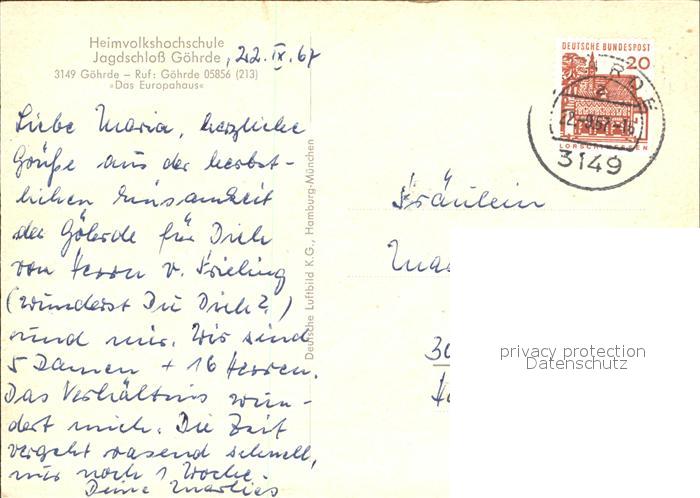 Heimvolkshochschule
Jagdschloß Göhrde, 22. IX. 67
3149 Göhrde – Ruf: Göhrde 05856 (213)
»Das Europahaus«
Liebe Maria, herzliche
Grüße aus der herbst-
lichen Einsamkeit
der Göhrde für Dich
von Herrn v. Frieling
(wunderst Du Dich?)
und mir. Wir sind
5 Damen + 16 Herren.
Das Verhältnis wun-
dert mich. Die Zeit
vergeht rasend schnell,
nur noch 1 Woche.
Deine Marlies
Deutsche Luftbild K.G., Hamburg-München
DEUTSCHE BUNDESPOST
20
LORSCH
3149
Fräulein
privacy protection
Datenschutz